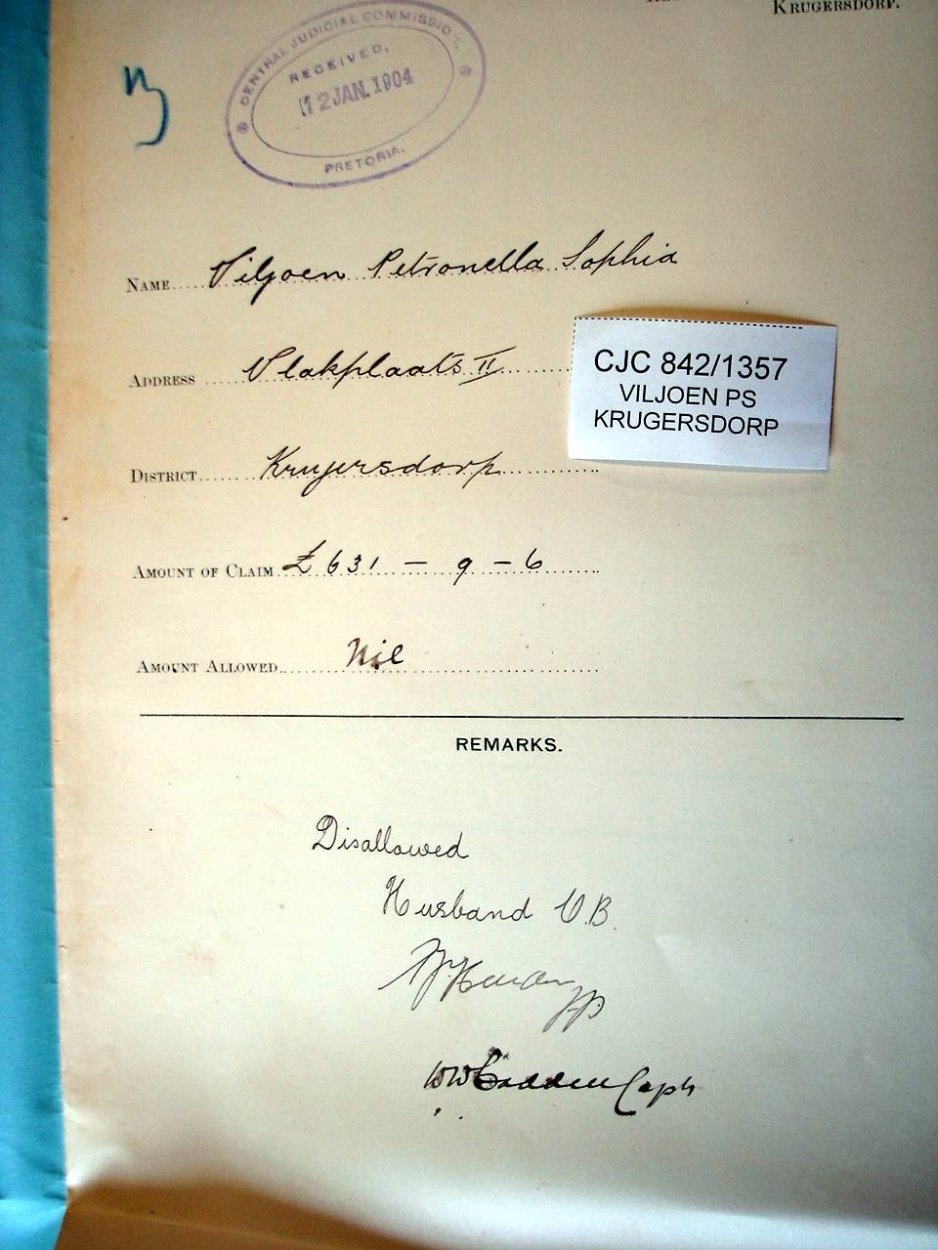 KRUGERSDORP.
CENTRAL JUDICIAL COMMISSION.
RECEIVED,
12 JAN. 1904
PRETORIA.
NAME Viljoen Petronella Sophia
ADDRESS Vlakplaats II
CJC 842/1357
VILJOEN PS
KRUGERSDORP
DISTRICT Krugersdorp
AMOUNT OF CLAIM £631 - 9 - 6
AMOUNT ALLOWED Nil
REMARKS.
Disallowed
Husband V.B.
JP
Capt